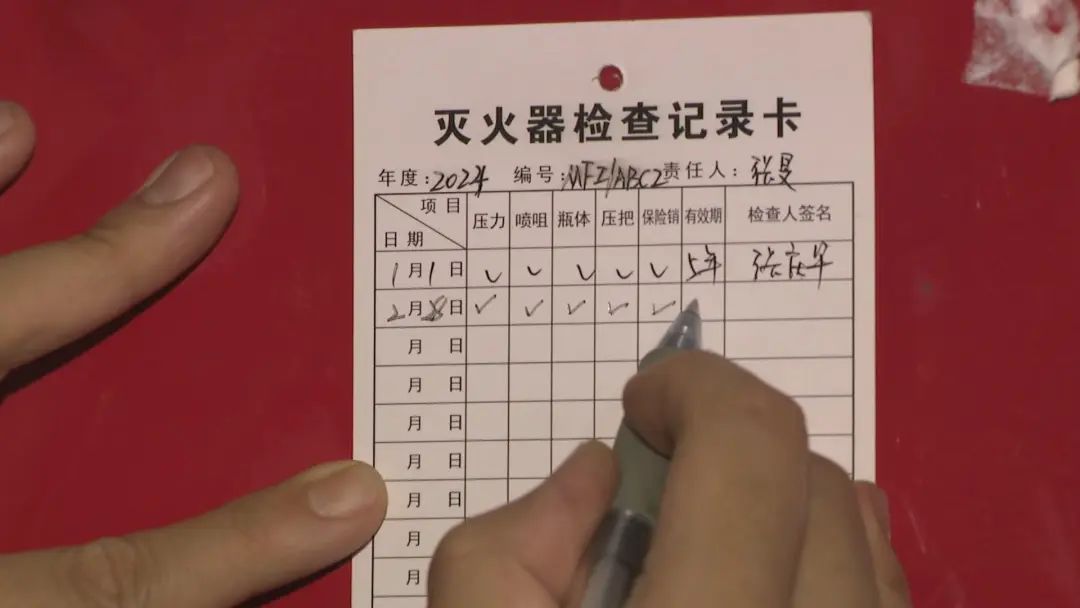 灭火器检查记录卡
年度:2024 编号:MFZ/ABC2 责任人:张旻
项目 日期 压力 喷咀 瓶体 压把 保险销 有效期 检查人签名
1月1日 ✓ ✓ ✓ ✓ ✓ 5年
2月8日 ✓ ✓ ✓ ✓ ✓
月 日
月 日
月 日
月 日
月 日
月
月